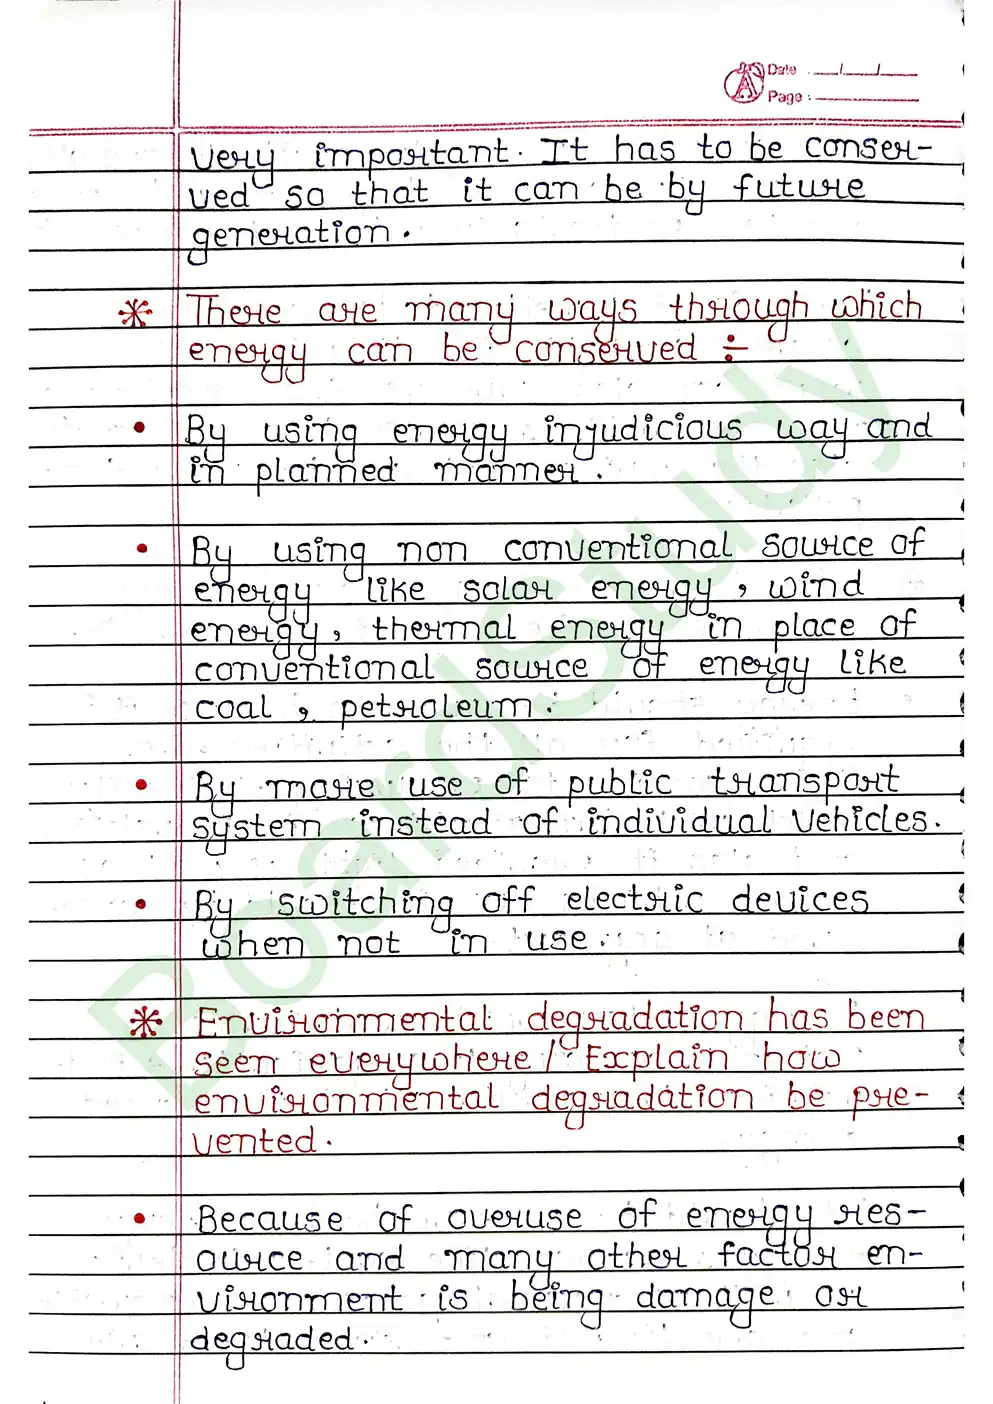 Date : ___/___/___
Page : ___
very important. It has to be conser-
ved so that it can be by future
generation.
* There are many ways through which
energy can be conserved ÷
• By using energy injudicious way and
in planned manner.
• By using non conventional source of
energy like solar energy, wind
energy, thermal energy in place of
conventional source of energy like
coal, petroleum.
• By more use of public transport
system instead of individual vehicles.
• By switching off electric devices
when not in use.
* Environmental degradation has been
seen everywhere / Explain how
environmental degradation be pre-
vented.
• Because of overuse of energy res-
ource and many other factor en-
vironment is being damage or
degraded.
BoardStudy